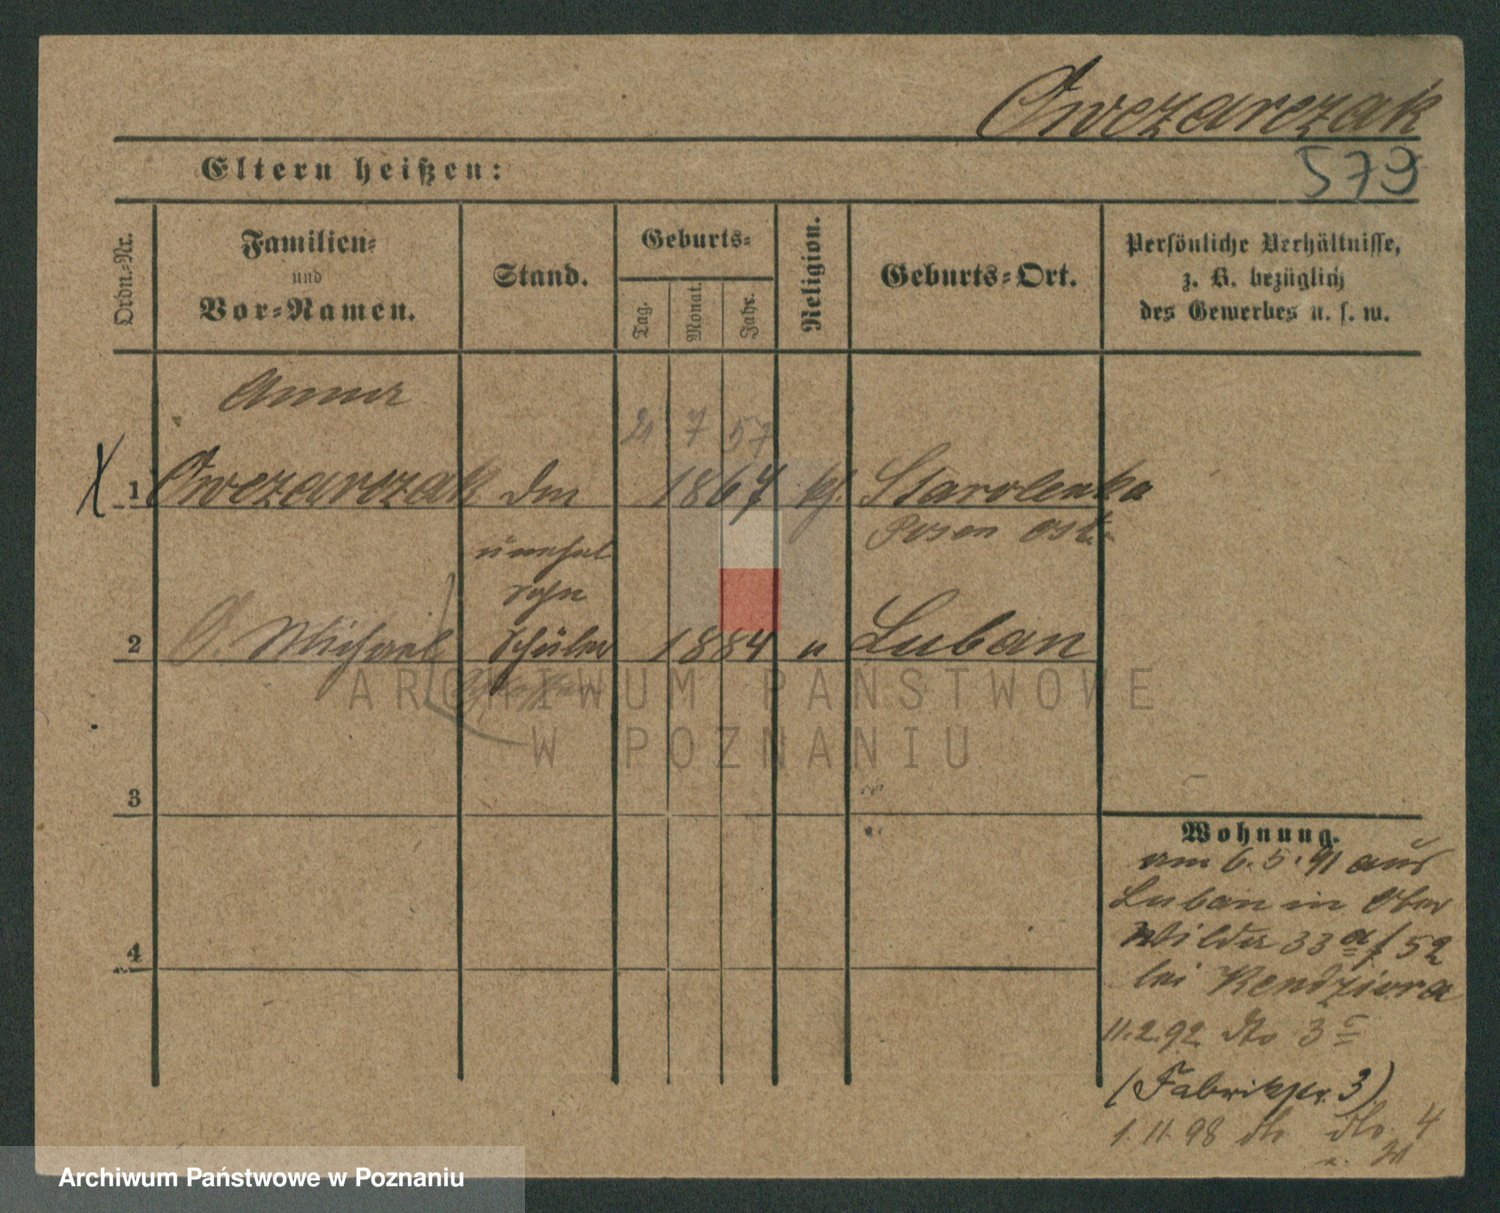 Owczarczak
Eltern heißen:
579
Ordn.-Nr.
Familien-
und
Vor-Namen.
Stand.
Geburts-
Tag.
Monat.
Jahr.
Religion.
Geburts-Ort.
Persönliche Verhältnisse,
z. B. bezüglich
des Gewerbes u. s. w.
Anna
21 7 57
1 Owczarczak 1867 kf. Starolenka
Posen Ost.
unehel
Sohn
2 O. Michael Schüler 1884 " Luban
ARCHIWUM PAŃSTWOWE
W POZNANIU
3
4
Wohnung.
am 6.5.91 aus
Luban in Ober
Wilda 33a f 52
bei Kendziora
11.2.92 dto 3c
(Fabrikstr. 3)
1.11.98 dto 4
Archiwum Państwowe w Poznaniu